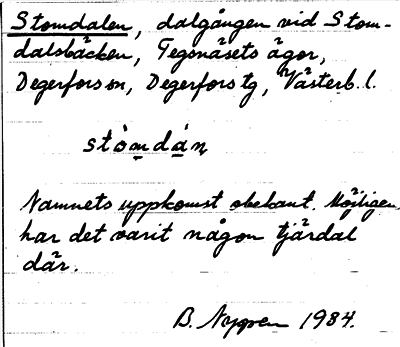 Stomdalen, dalgången vid Stom-
dalsbäcken, Tegsnäsets ägor,
Degerfors sn, Degerfors tg, Västerb. l.
stòmdán
Namnets uppkomst obekant. Möjligen
har det varit någon tjärdal
där.
B. Nygren 1984.